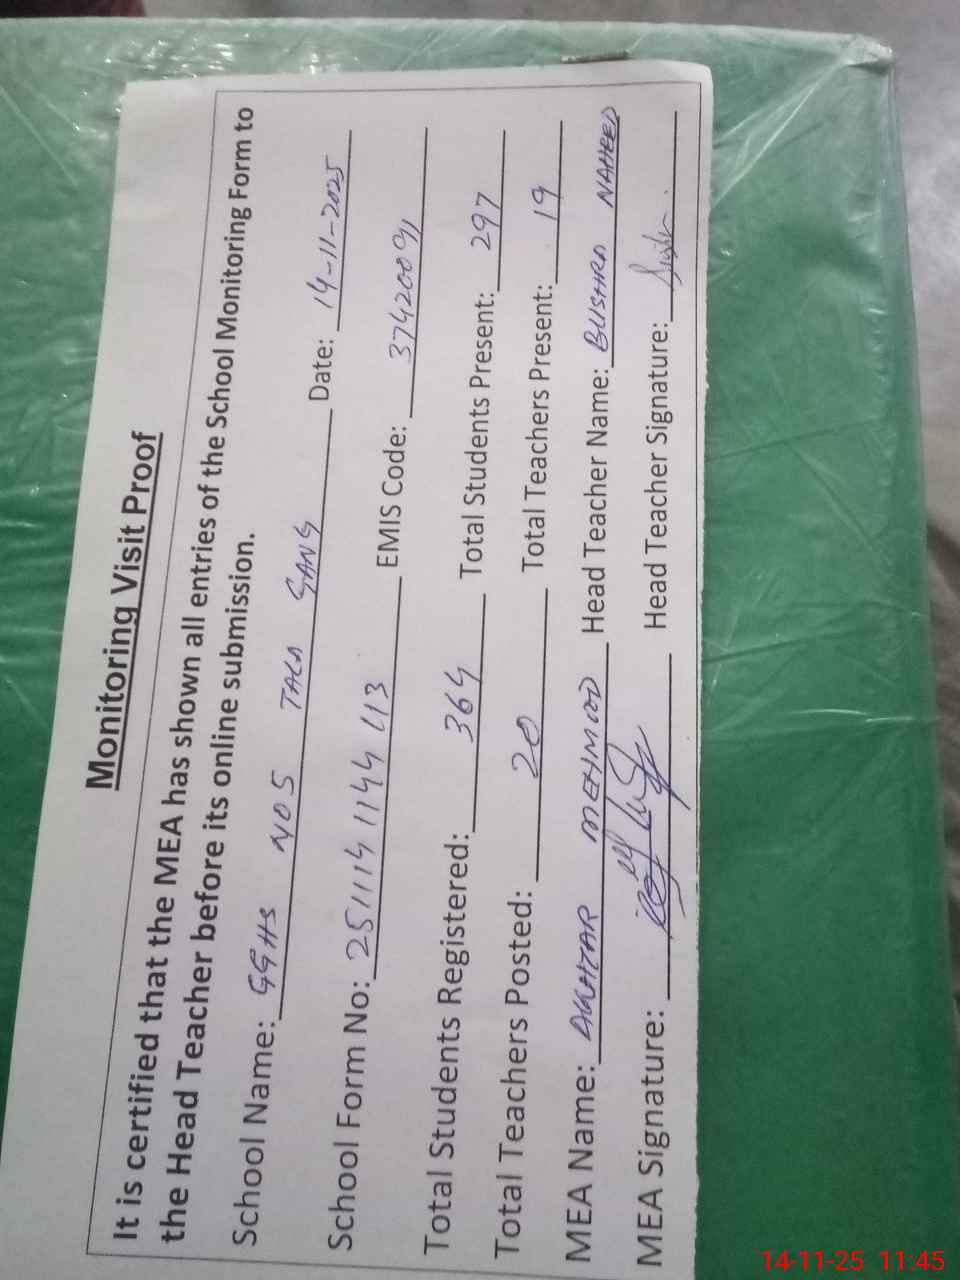 Monitoring Visit Proof
It is certified that the MEA has shown all entries of the School Monitoring Form to
the Head Teacher before its online submission.
School Name: GGHS NO5 TALA GANG Date: 14-11-2025
School Form No: 2511141144413 EMIS Code: 37420091
Total Students Registered: 364 Total Students Present: 297
Total Teachers Posted: 20 Total Teachers Present: 19
MEA Name: AKHTAR MEHMOOD Head Teacher Name: BUSHRA NAHEED
MEA Signature: Head Teacher Signature:
14-11-25 11:45